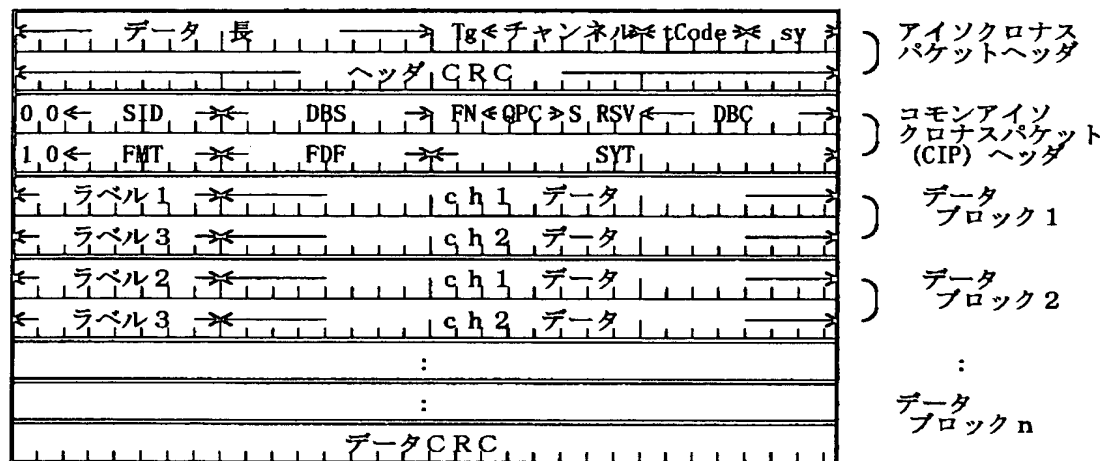 データ長 Tg チャンネル tCode sy
アイソクロナス
パケットヘッダ
ヘッダCRC
0 0 SID DBS FN QPC S RSV DBC
コモンアイソ
クロナスパケット
(CIP) ヘッダ
1 0 FMT FDF SYT
ラベル1 ch1 データ
データ
ブロック1
ラベル3 ch2 データ
ラベル2 ch1 データ
データ
ブロック2
ラベル3 ch2 データ
: :
:
データ
ブロックn
データCRC